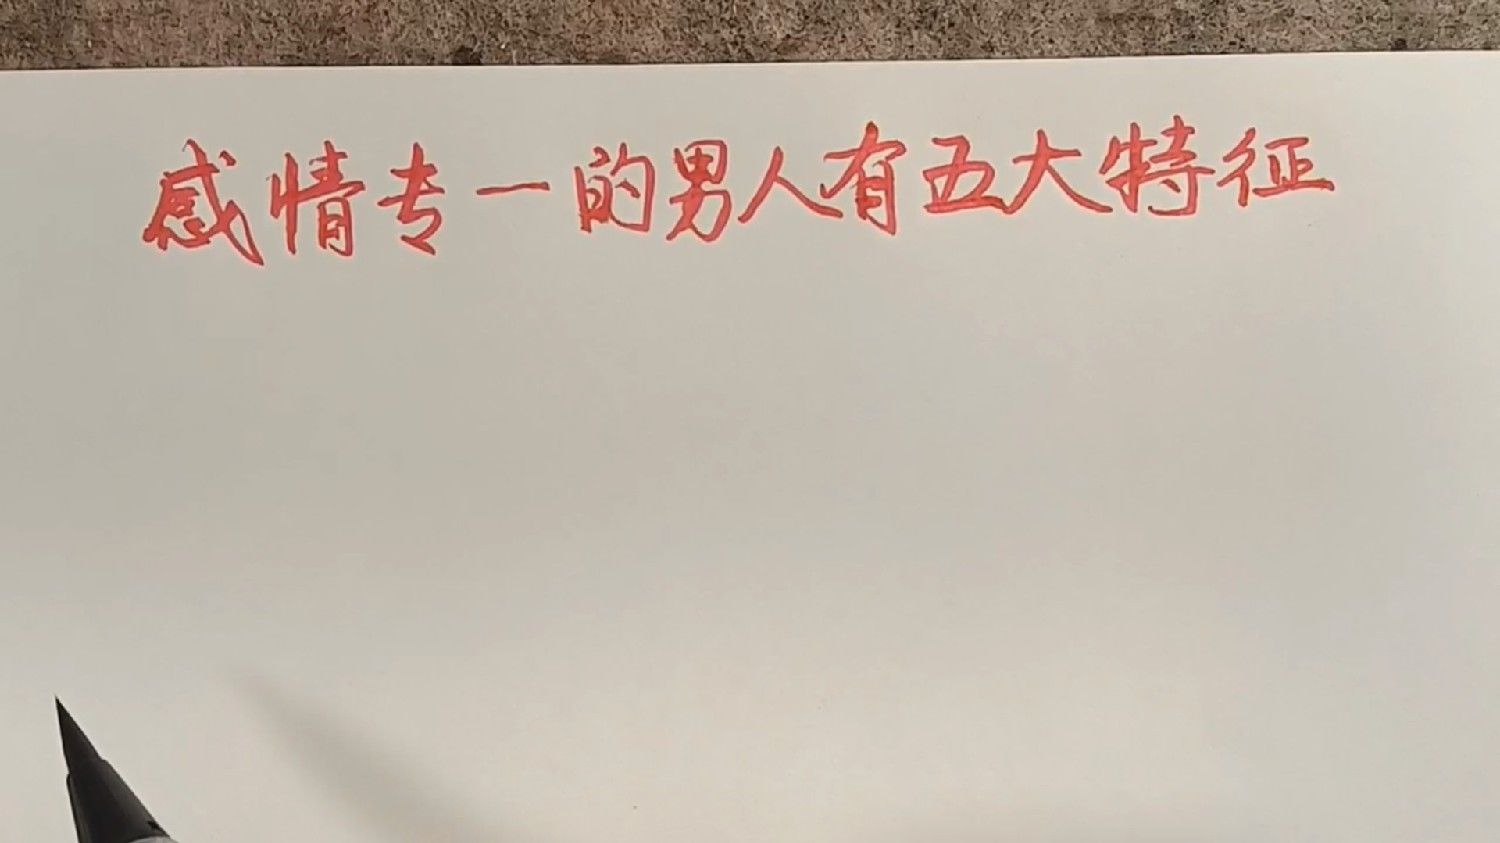 感情专一的男人有五大特征